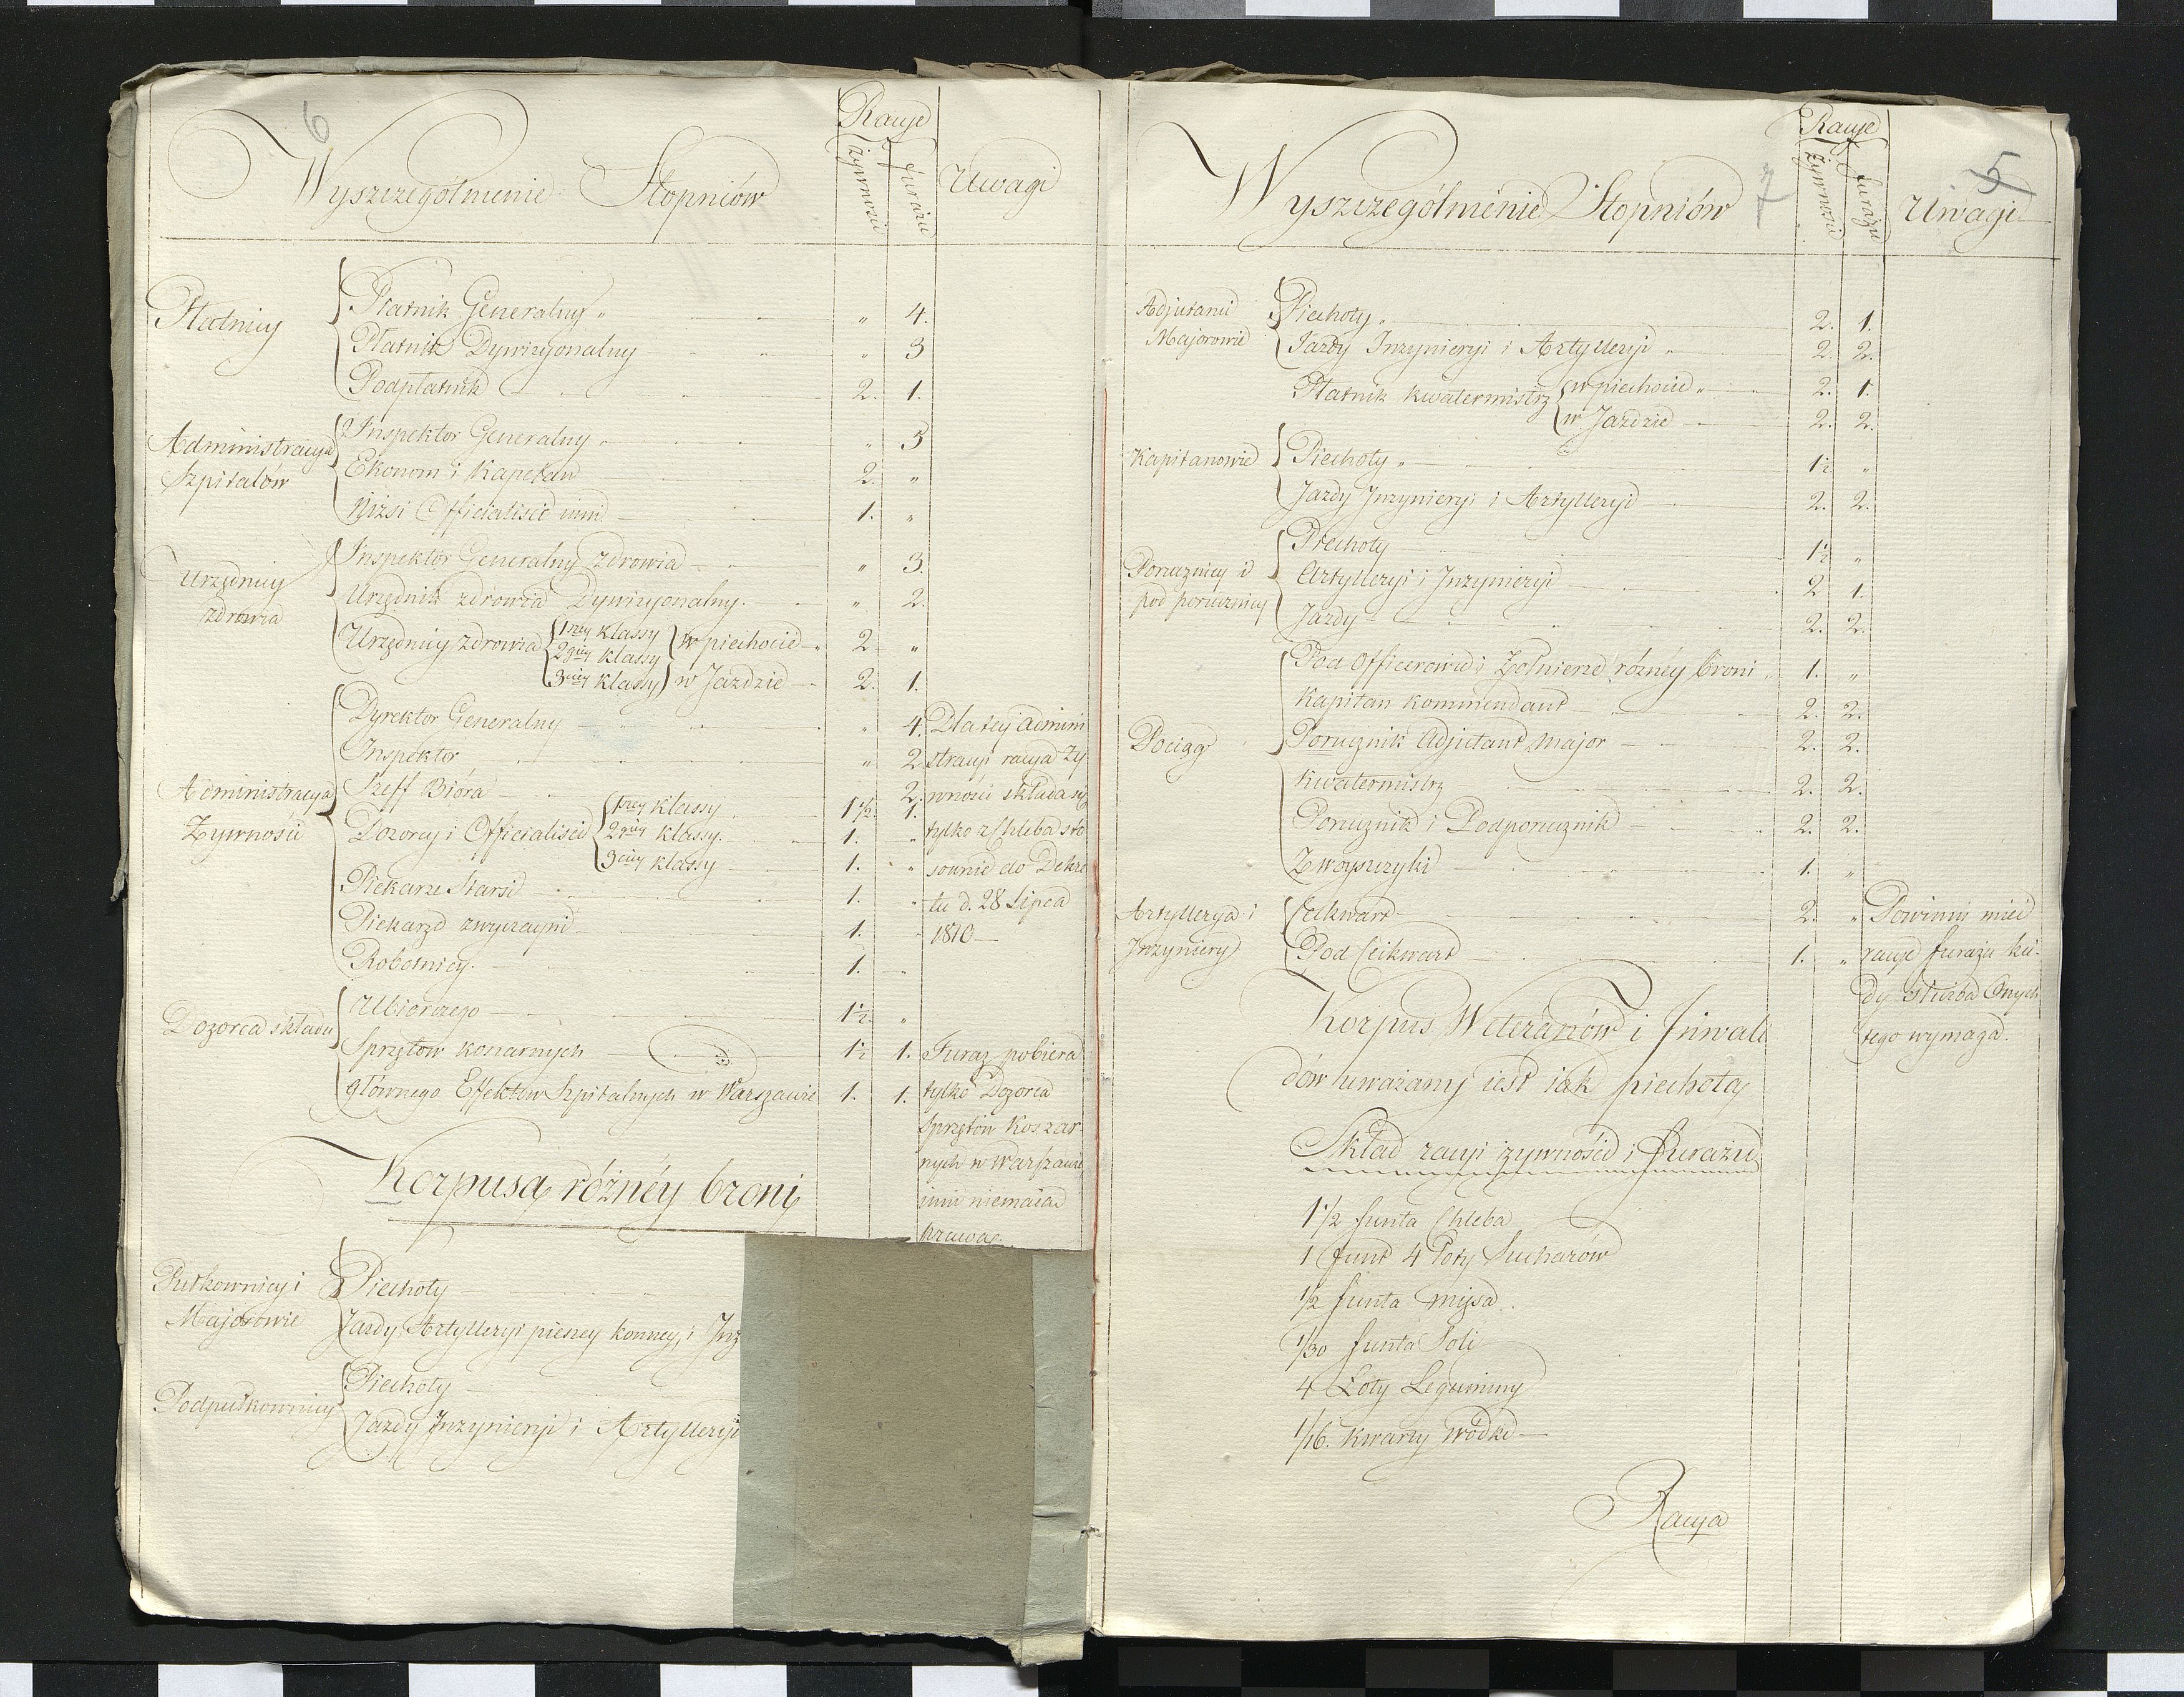 6
Wyszczególnienie Stopniów
Racye
Żywności
furażu
Uwagi
Płatnicy
Płatnik Generalny „ „ 4.
Płatnik Dywizyonalny „ 3
Podpłatnik 2. 1.
Administracya
Szpitalów
Inspektor Generalny „ „ 3
Ekonom i Kapelan 2. „
Niżsi Officialiści inni 1. „
Urzędnicy
zdrowia
Inspektor Generalny zdrowia „ 3.
Urzędnik zdrowia Dywizyonalny. „ 2.
Urzędnicy zdrowia
1szey klassy
2giey klassy
3ciey klassy
w piechocie 2 „
w Jazdzie 2. 1.
Administracya
Żywności
Dyrektor Generalny „ 4.
Inspektor „ 2
Szeff Bióra 2.
Dozorcy i Officialiści
1szey klassy 1½ 1.
2giey klassy. 1. „
3ciey klassy 1. „
Piekarze Starsi 1. „
Piekarze zwyczayni 1. „
Robotnicy. 1. „
Dla tey admini
stracyi racya ży
wności składa się
tylko z Chleba sto
sownie do Dekre
tu d. 28 Lipca
1810
Dozorca składu
Ubiorczego 1½ „
Sprzętow koszarnych 1½ 1.
głównego Effektow Szpitalnych w Warszawie 1. 1.
Furaż pobiera
tylko Dozorca
Sprzętów Koszar-
nych w Warszawie
inni niemaią
prawa.
Korpusa różnéy broni
Pułkownicy i
Majorowie
Piechoty
Jazdy, Artylleryi pieszey konney, i Inż
Podpułkownicy
Piechoty
Jazdy Inżynieryi i Artylleryi
7
5
Wyszczególnienie Stopniów
Racye
Żywności
furażu
Uwagi
Adjutanci
Majorowie
Piechoty „ 2. 1.
Jazdy Inżynieryi i Artylleryi „ 2. 2.
Płatnik Kwatermistrz
w piechocie „ 2. 1.
w Jazdzie 2. 2.
Kapitanowie
Piechoty „ 1½ „
Jazdy Inżynieryi i Artylleryi 2. 2.
Porucznicy i
pod porucznicy
Piechoty 1½ „
Artylleryi i Inżynieryi 2 1.
Jazdy 2. 2.
Pod Officerowie i Żołnierze różnéy broni „ 1. „
Pociąg
Kapitan Kommendant 2. 2.
Porucznik Adjutant Major 2. 2.
Kwatermistrz 2. 2.
Porucznik i Podporucznik 2. 2.
Żwoyszczyki 1. „
Artyllerya i
Inżyniery
Ceikwart 2. „
Pod Ceikwart 1. „
Powinni mieć
racye furażu kie-
dy służba Onych
tego wymaga.
Korpus Weteranów i Inwali
dów uważany iest iak piechota
Skład racyi żywności i furażu
1½ funta Chleba
1 funt 4 Łoty Sucharów
½ funta mięsa.
1/30 funta Soli
4 Łoty Leguminy
1/16. kwarty wódki
Racya